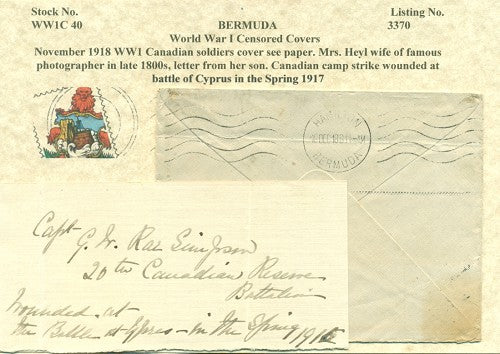 Stock No.
WW1C 40
BERMUDA
World War I Censored Covers
Listing No.
3370
November 1918 WW1 Canadian soldiers cover see paper. Mrs. Heyl wife of famous
photographer in late 1800s, letter from her son. Canadian camp strike wounded at
battle of Cyprus in the Spring 1917
BERMUDA
Capt
G. W. Rae Simpson
20th Canadian Reserve
Battalion
Wounded at
the Battle of Ypres - in the Spring